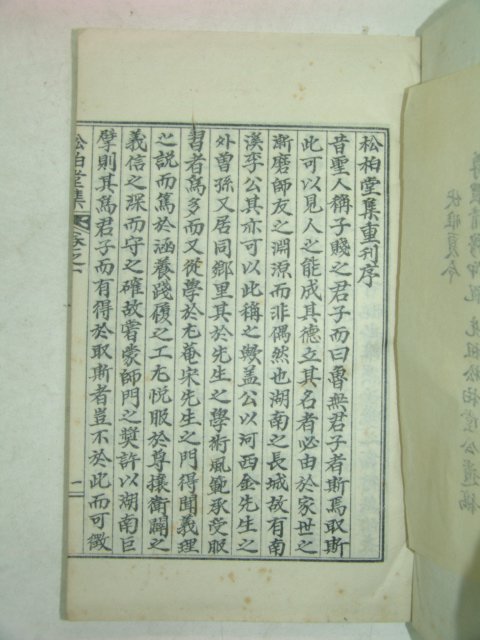 松柏堂集重刊序
昔聖人稱子賤之君子而曰魯無君子者斯焉取斯
此可以見人之能成其德立其名者必由於家世之
漸磨師友之淵源而非偶然也湖南之長城故有南
溪李公其亦可以此稱之歟盖公以河西金先生之
外曾孫又居同鄕里其於先生之學術風範承受服
習者爲多而又從學於尤菴宋先生之門得聞義理
之說而篤於涵養踐履之工尤悅服於尊攘衛闢之
義信之深而守之確故嘗蒙師門之奬許以湖南巨
擘則其爲君子而有得於取斯者豈不於此而可徵
松柏堂集
一